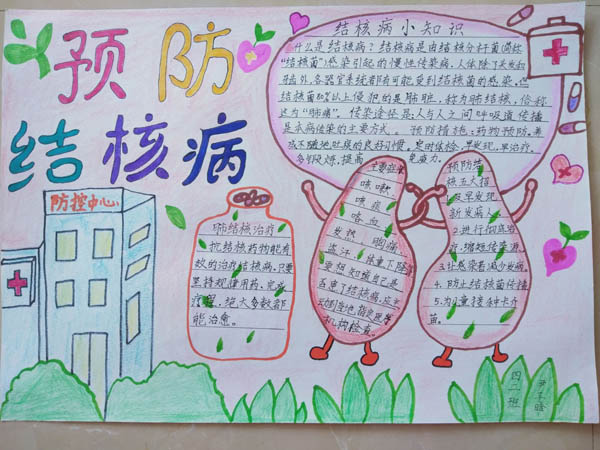 预防
结核病
结核病小知识
什么是结核病？结核病是由结核分杆菌简称
"结核菌")感染引起的慢性传染病,人体除了头发和
牙齿外,各器官系统都有可能受到结核菌的感染,但
结核菌80%以上侵犯的是肺脏,称为肺结核,俗称
为"肺痨"。传染途径是:人与人之间呼吸道传播
是本病传染的主要方式。预防措施:药物预防,养
成不随地吐痰的良好习惯,定时体检,早发现,早治疗,
多锻炼,提高免疫力。
防控中心
肺结核治疗
抗结核药物能有
效的治疗结核病,只要
坚持规律用药,完成
疗程,绝大多数都
能治愈。
主要症状
咳嗽,
咳痰
咯血
发热、胸痛、
盗汗、体重下降等
要想知道自己是
否患了结核病,应主
动到当地指定医学
机构检查。
预防结
核五大招
1.及早发现
新发病人
2.进行彻底治
疗,缩短传染源
3.让感染者减少发病
4.防止结核菌传播
5.为儿童接种卡介
苗。
四二班